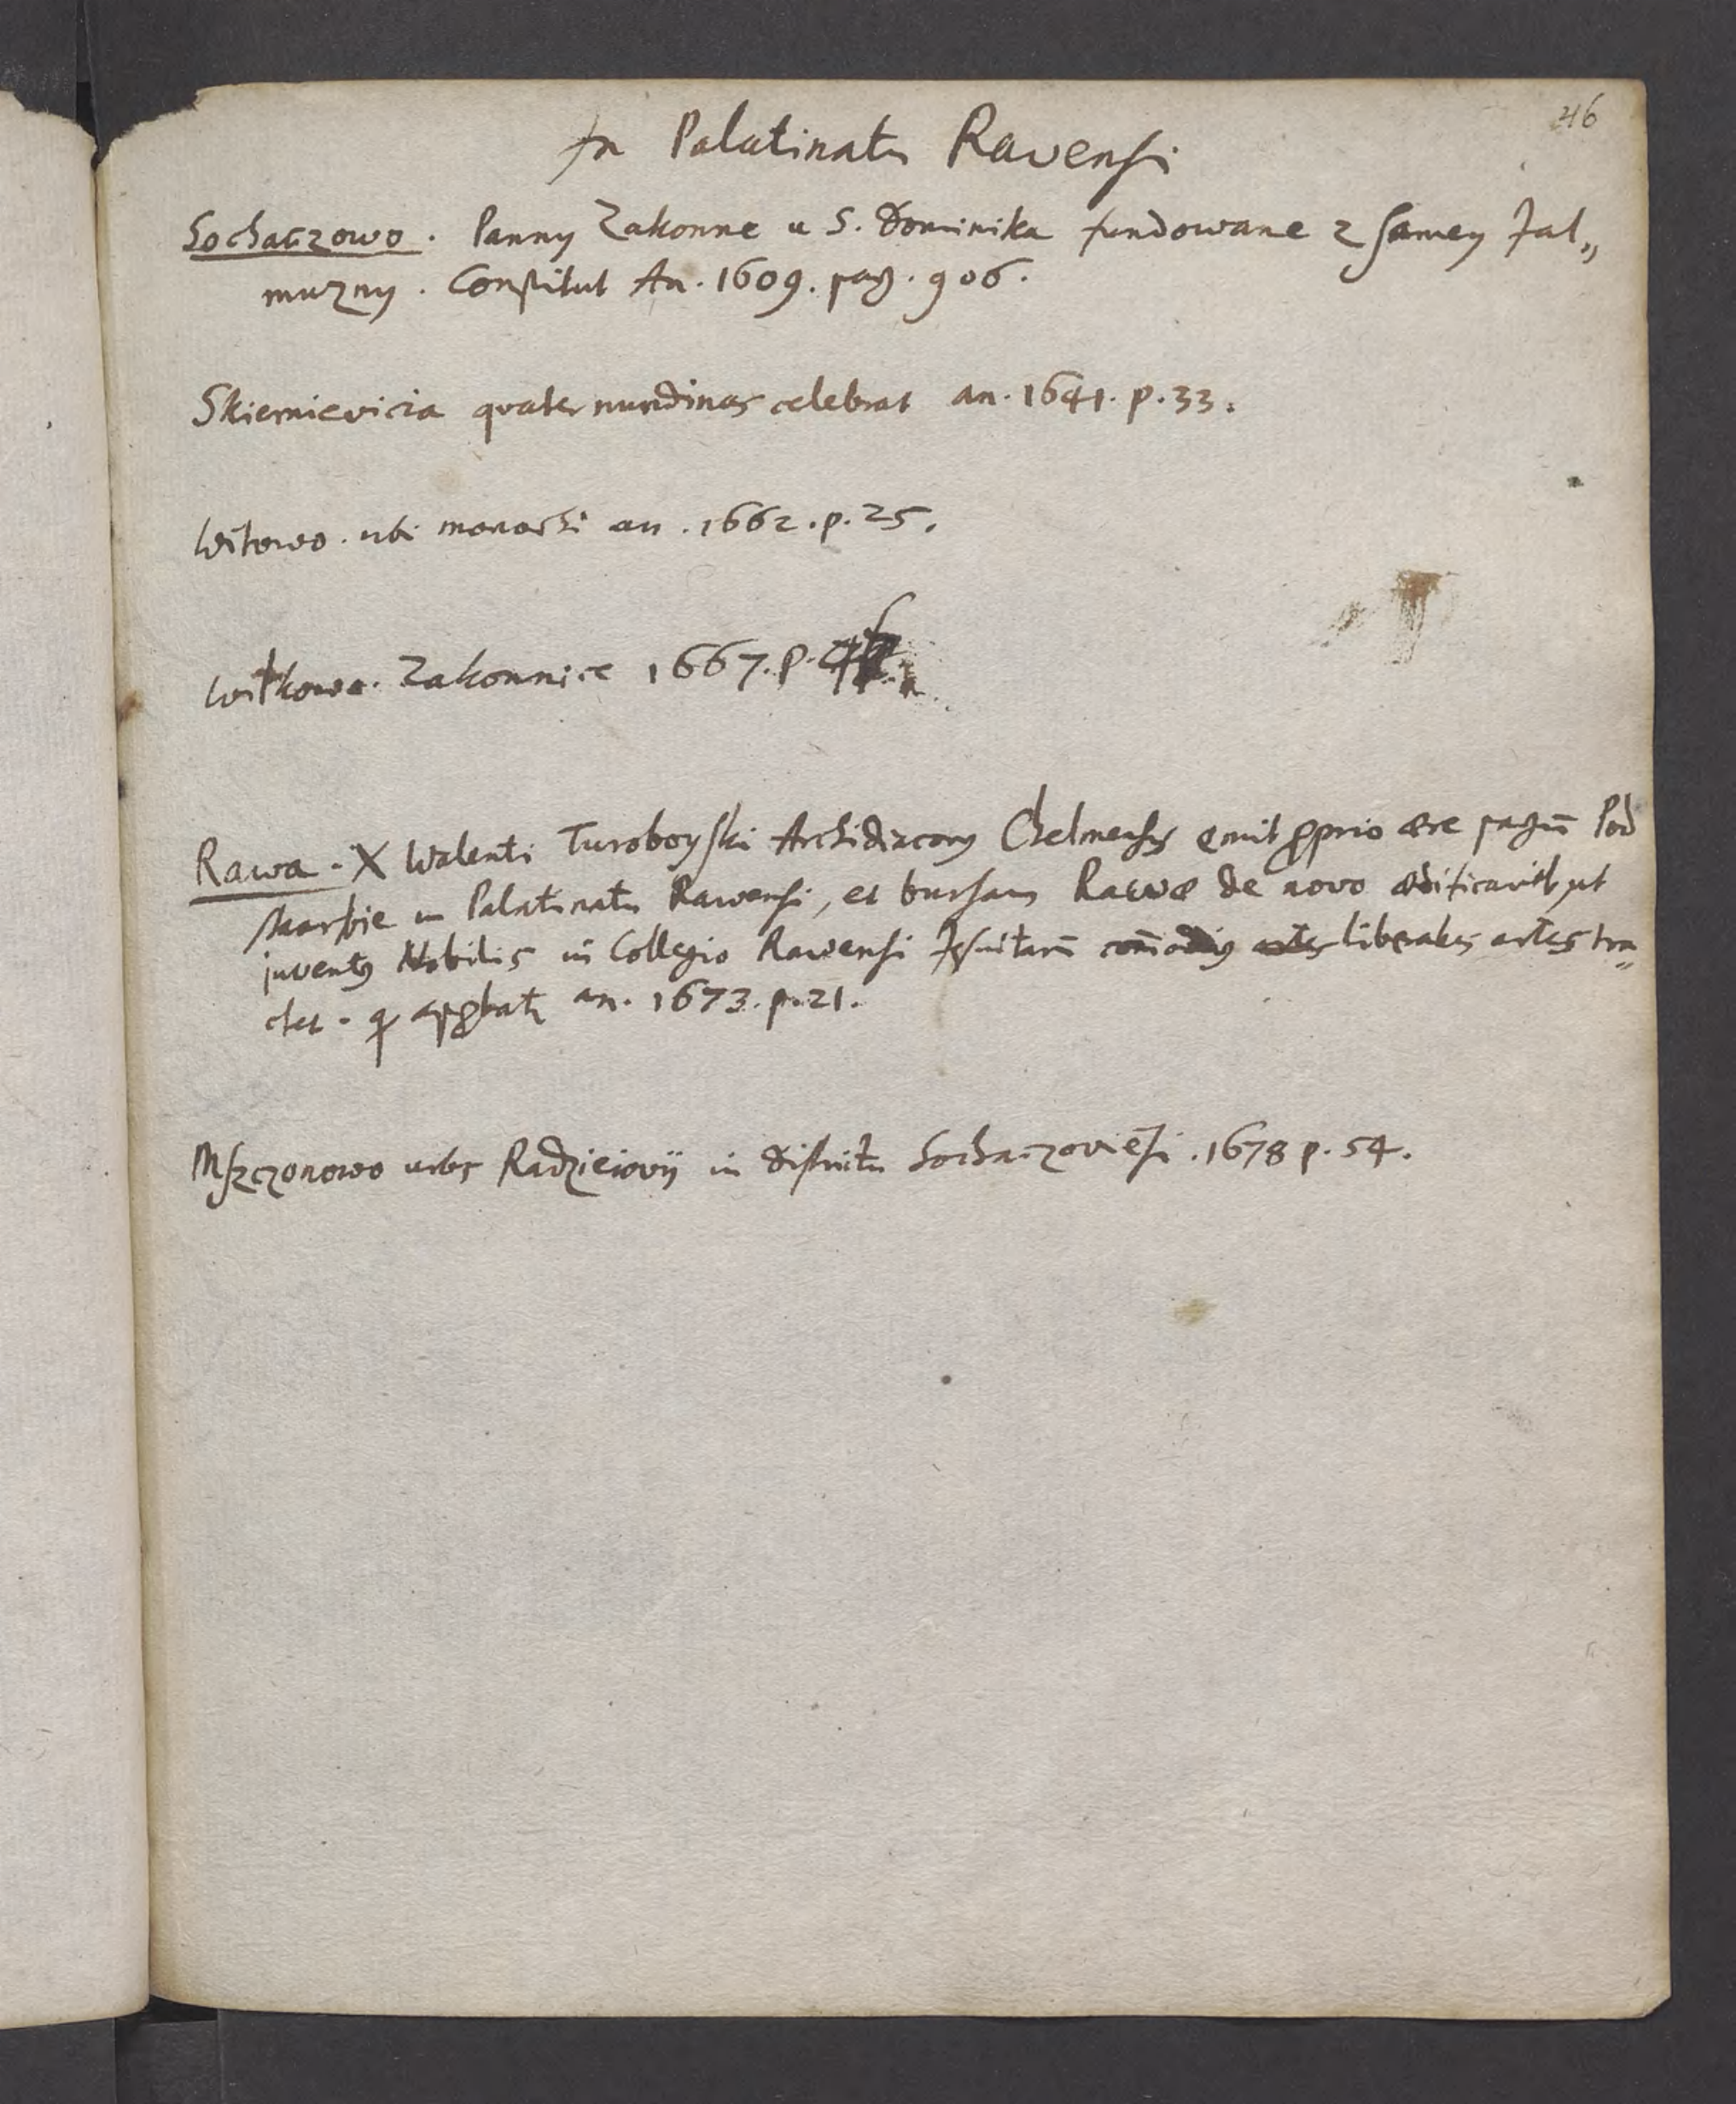 46
In Palatinatu Ravensi
Sochaczowo. Panny Zakonne u S. Dominika fundowane z samey Jal„
muzny. Constitut An. 1609. pag. 906.
Skiernievicia quater nundinas celebrat an. 1641. p. 33.
Witowo. ubi monachi an. 1662. p. 25.
Witkowo. Zakonnice 1667. p.
Rawa. X Walenti Turoboyski Archidiacony Chelmensis emit proprio ære pagū Pod
skarbie in Palatinatu Rawensi, et bursam Rawæ de novo ædificavit, ut
juventus Nobilis in Collegio Rawensi Jesuitarū liberales artes tra„
ctet. an. 1673. p. 21.
Mszczonowo urbs Radzieiovij in districtu Sochaczoviēsi. 1678 p. 54.